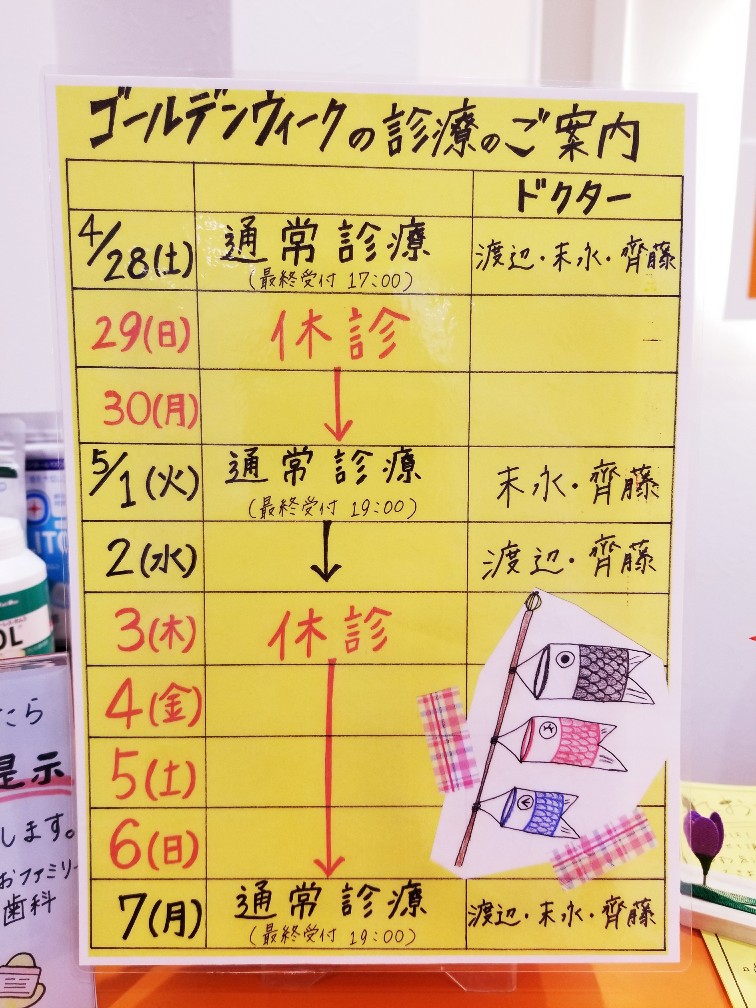 ゴールデンウィークの診療のご案内
ドクター
4/28(土) 通常診療 渡辺・末永・齊藤
(最終受付 17:00)
29(日) 休診
30(月) ↓
5/1(火) 通常診療 末永・齊藤
(最終受付 19:00)
2(水) ↓ 渡辺・齊藤
3(木) 休診
4(金)
5(土)
6(日)
7(月) 通常診療 渡辺・末永・齊藤
(最終受付 19:00)
たら
提示
します。
おファミリー
歯科
OL